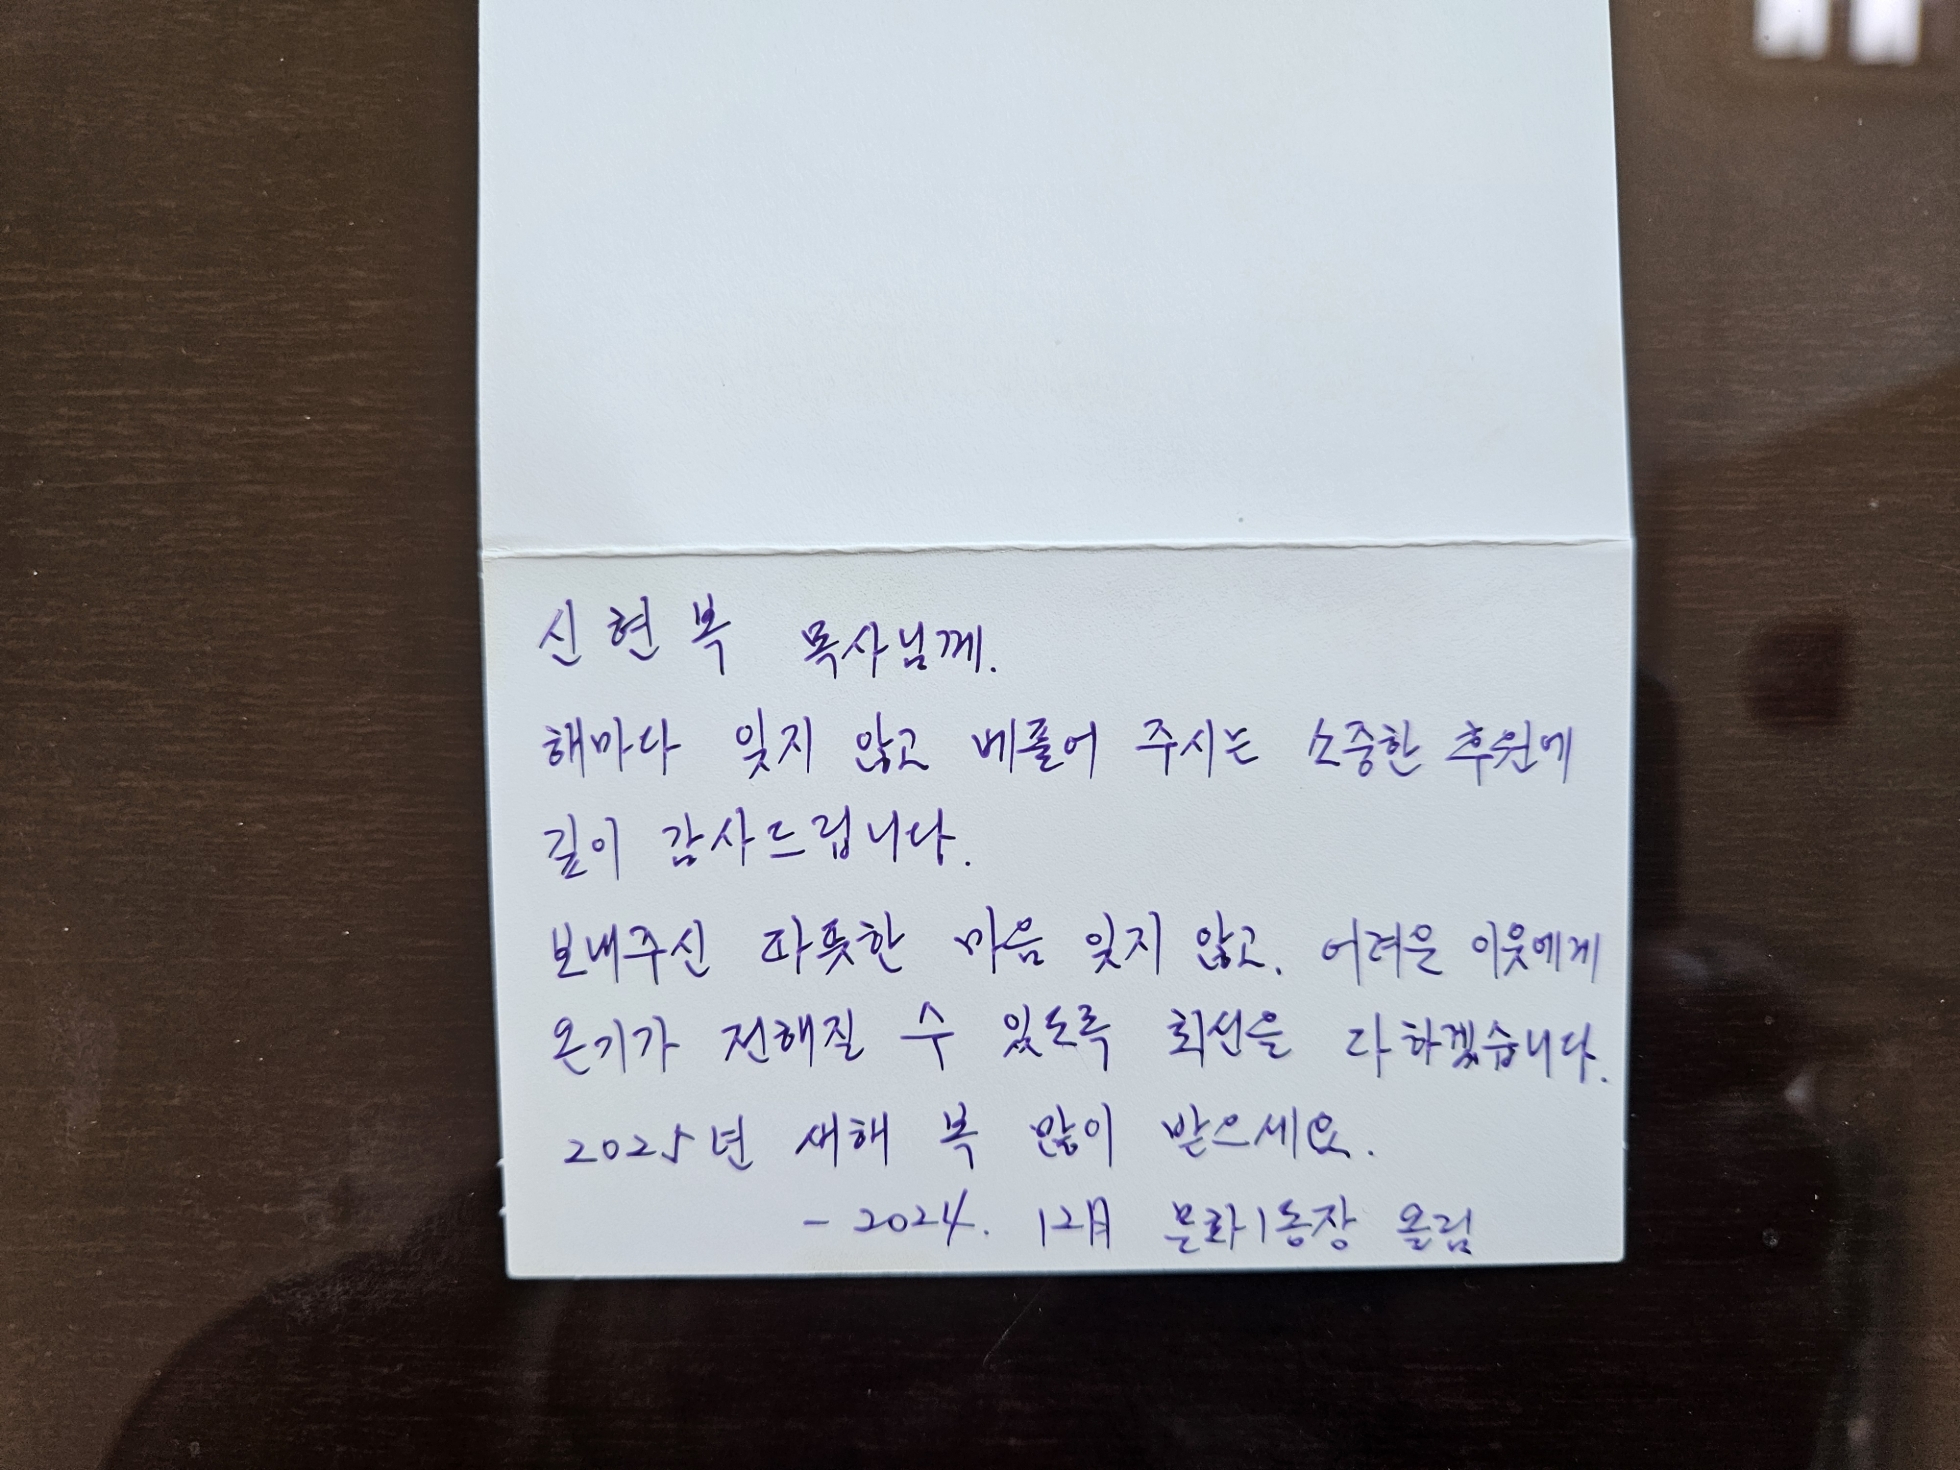 신현복 목사님께.
해마다 잊지 않고 베풀어 주시는 소중한 후원에
깊이 감사드립니다.
보내주신 따뜻한 마음 잊지 않고, 어려운 이웃에게
온기가 전해질 수 있도록 최선을 다하겠습니다.
2025년 새해 복 많이 받으세요.
- 2024. 12月 문화1동장 올림